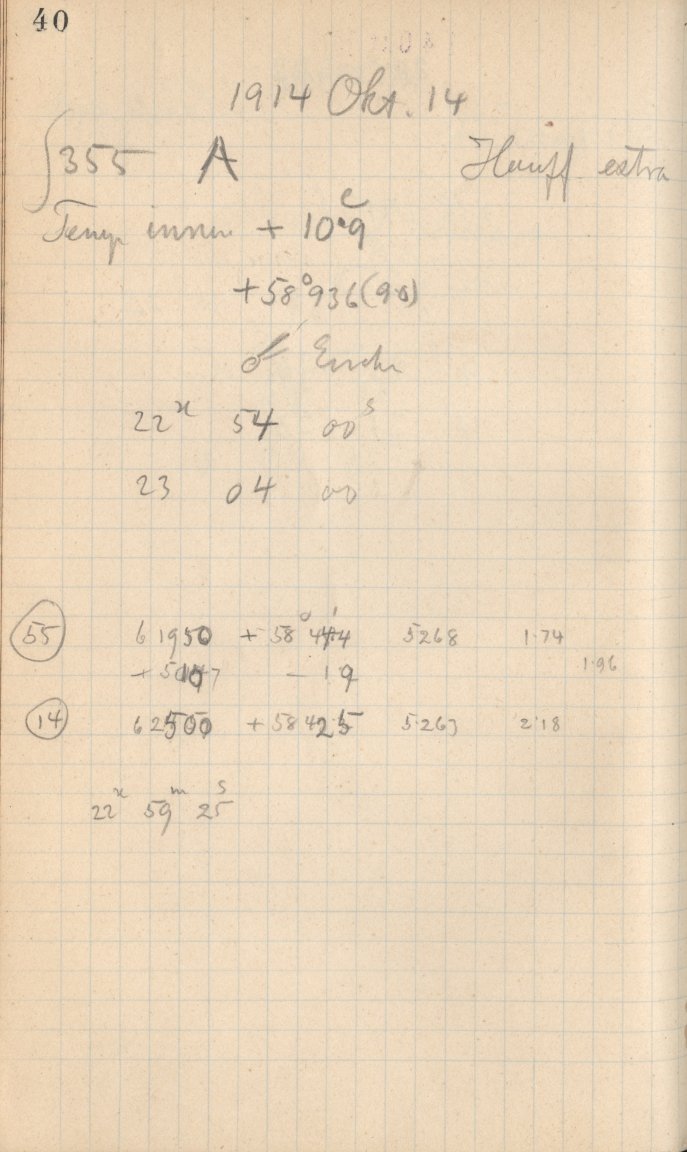 40
1914 Okt. 14
355 A Hauff extra
Temp innen + 10.°9
+58°936(90)
22 54 00s
23 04 00
55 61950 + 58° 5268 1.74
- 19 1.96
14 62500 + 58 425 5263 2.18
22 59m 25s